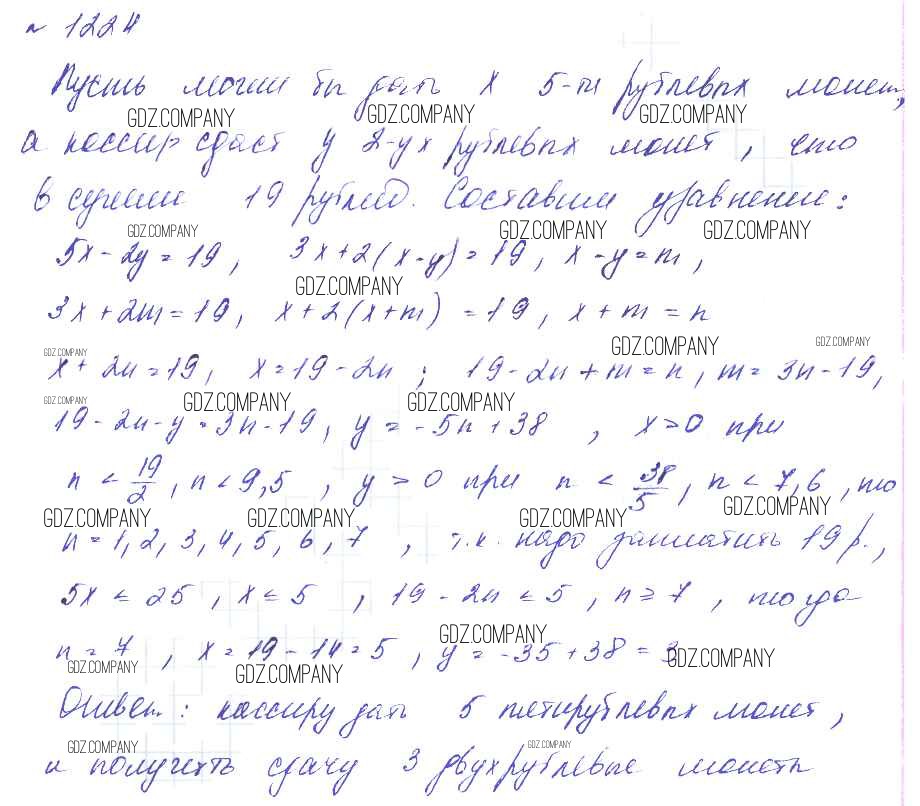 № 1224
Пусть могли бы дать x 5-ти рублевых монет,
GDZ.COMPANY GDZ.COMPANY GDZ.COMPANY
а кассир сдаст y 2-ух рублевых монет, что
в сумме 19 рублей. Составим уравнение:
GDZ.COMPANY GDZ.COMPANY GDZ.COMPANY
5x - 2y = 19, 3x + 2(x - y) = 19, x - y = m,
GDZ.COMPANY
3x + 2m = 19, x + 2(x + m) = 19, x + m = n
GDZ.COMPANY GDZ.COMPANY GDZ.COMPANY
x + 2n = 19, x = 19 - 2n; 19 - 2n + m = n, m = 3n - 19,
GDZ.COMPANY GDZ.COMPANY GDZ.COMPANY
19 - 2n - y = 3n - 19, y = -5n + 38, x > 0 при
n < 19/2, n < 9,5, y > 0 при n < 38/5, n < 7,6, то
GDZ.COMPANY
GDZ.COMPANY GDZ.COMPANY GDZ.COMPANY
n = 1, 2, 3, 4, 5, 6, 7, т.к. надо заплатить 19 р.,
5x ≤ 25, x ≤ 5, 19 - 2n ≤ 5, n ≥ 7, тогда
GDZ.COMPANY
n = 7, x = 19 - 14 = 5, y = -35 + 38 = 3
GDZ.COMPANY GDZ.COMPANY GDZ.COMPANY
Ответ: кассиру дать 5 пятирублевых монет,
GDZ.COMPANY GDZ.COMPANY
и получить сдачу 3 двухрублевые монеты